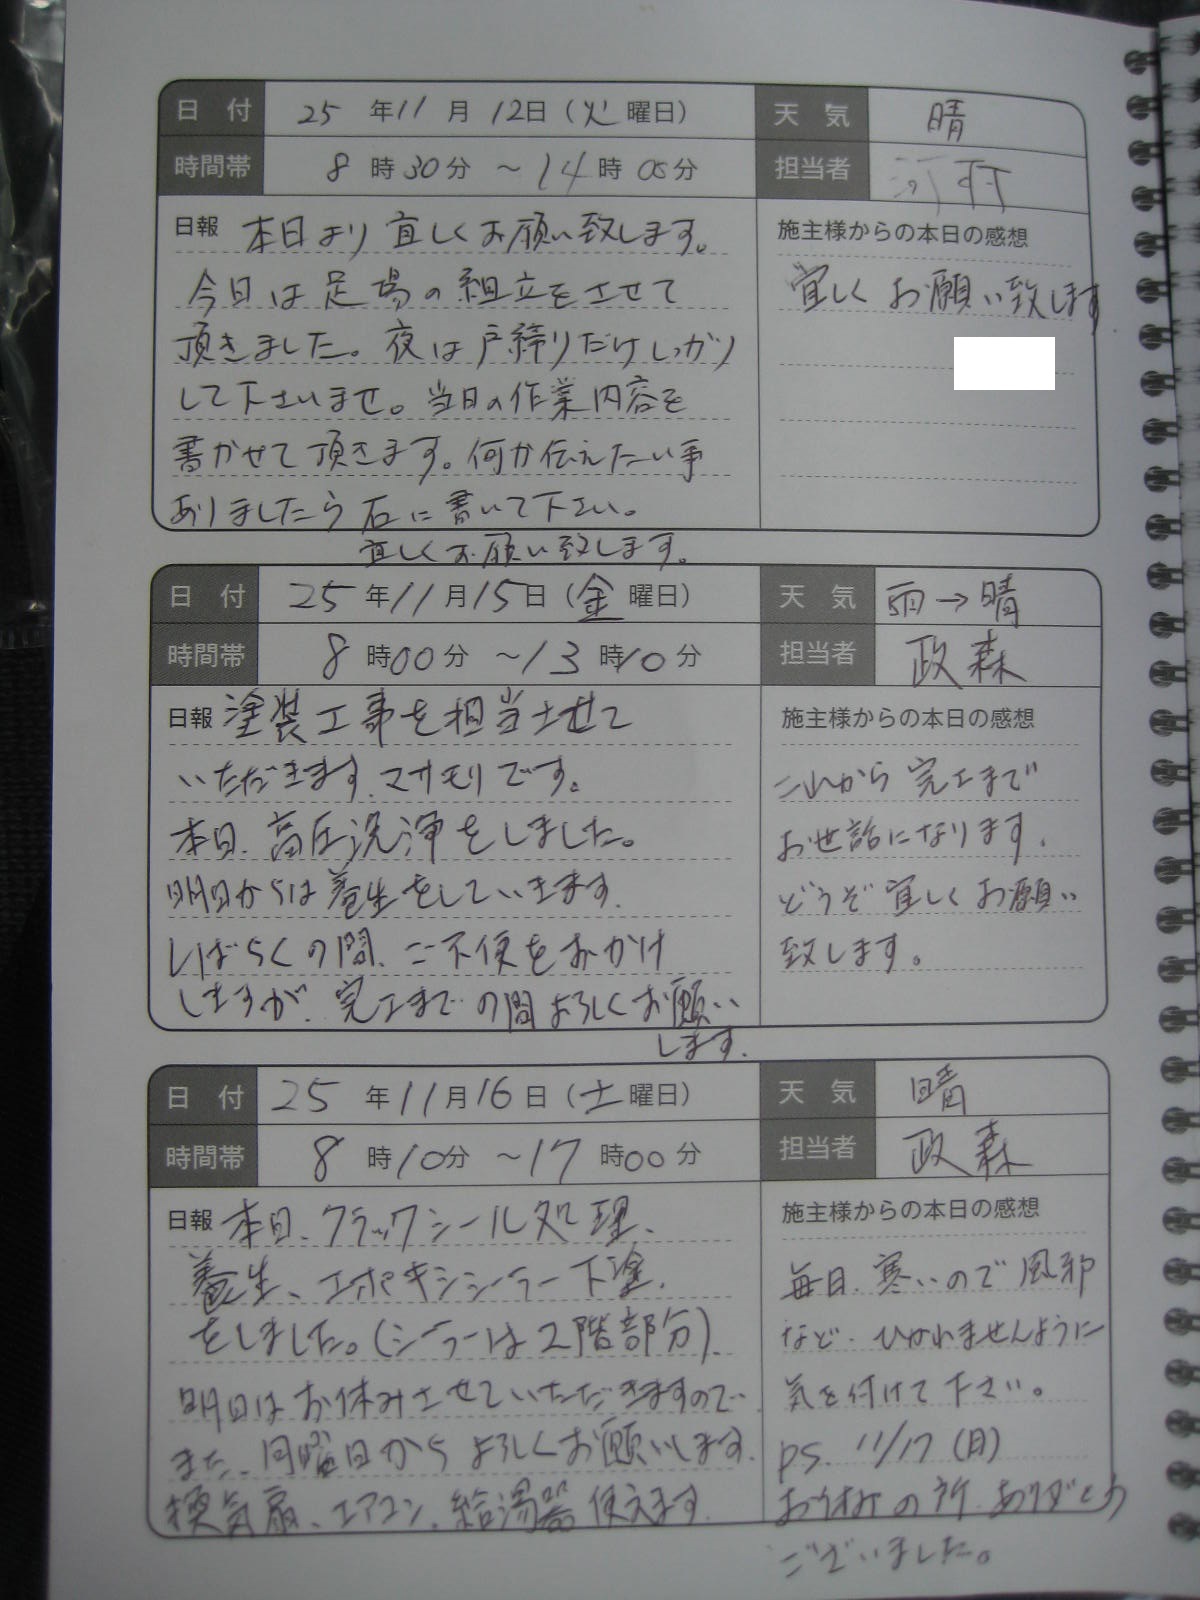 日 付 25 年 11 月 12 日 (火 曜日) 天 気 晴
時間帯 8 時 30 分 ～ 14 時 05 分 担当者 河村
日報 本日より 宜しくお願い致します。
今日は 足場の組立をさせて
頂きました。夜は戸締りだけしっかり
して下さいませ。当日の作業内容を
書かせて頂きます。何か伝えたい事
ありましたら 右に書いて下さい。
宜しくお願い致します。
施主様からの本日の感想
宜しく お願い致します
日 付 25 年 11 月 15 日 (金 曜日) 天 気 雨→晴
時間帯 8 時 00 分 ～ 13 時 10 分 担当者 政森
日報 塗装工事を担当させて
いただきます、マサモリです。
本日、高圧洗浄をしました。
明日からは養生をしていきます。
しばらくの間、ご不便をおかけ
しますが、完工までの間よろしくお願い
します。
施主様からの本日の感想
これから 完工まで
お世話になります。
どうぞ 宜しくお願い
致します。
日 付 25 年 11 月 16 日 (土 曜日) 天 気 晴
時間帯 8 時 10 分 ～ 17 時 00 分 担当者 政森
日報 本日、クラックシール処理、
養生、エポキシシーラー下塗、
をしました。(シーラーは2階部分)、
明日はお休みさせていただきますので、
また、月曜日からよろしくお願いします。
換気扇、エアコン、給湯器 使えます。
施主様からの本日の感想
毎日、寒いので 風邪
など、ひかれませんように
気を付けて下さい。
PS. 11/17 (日)
お休みの所、ありがとう
ございました。